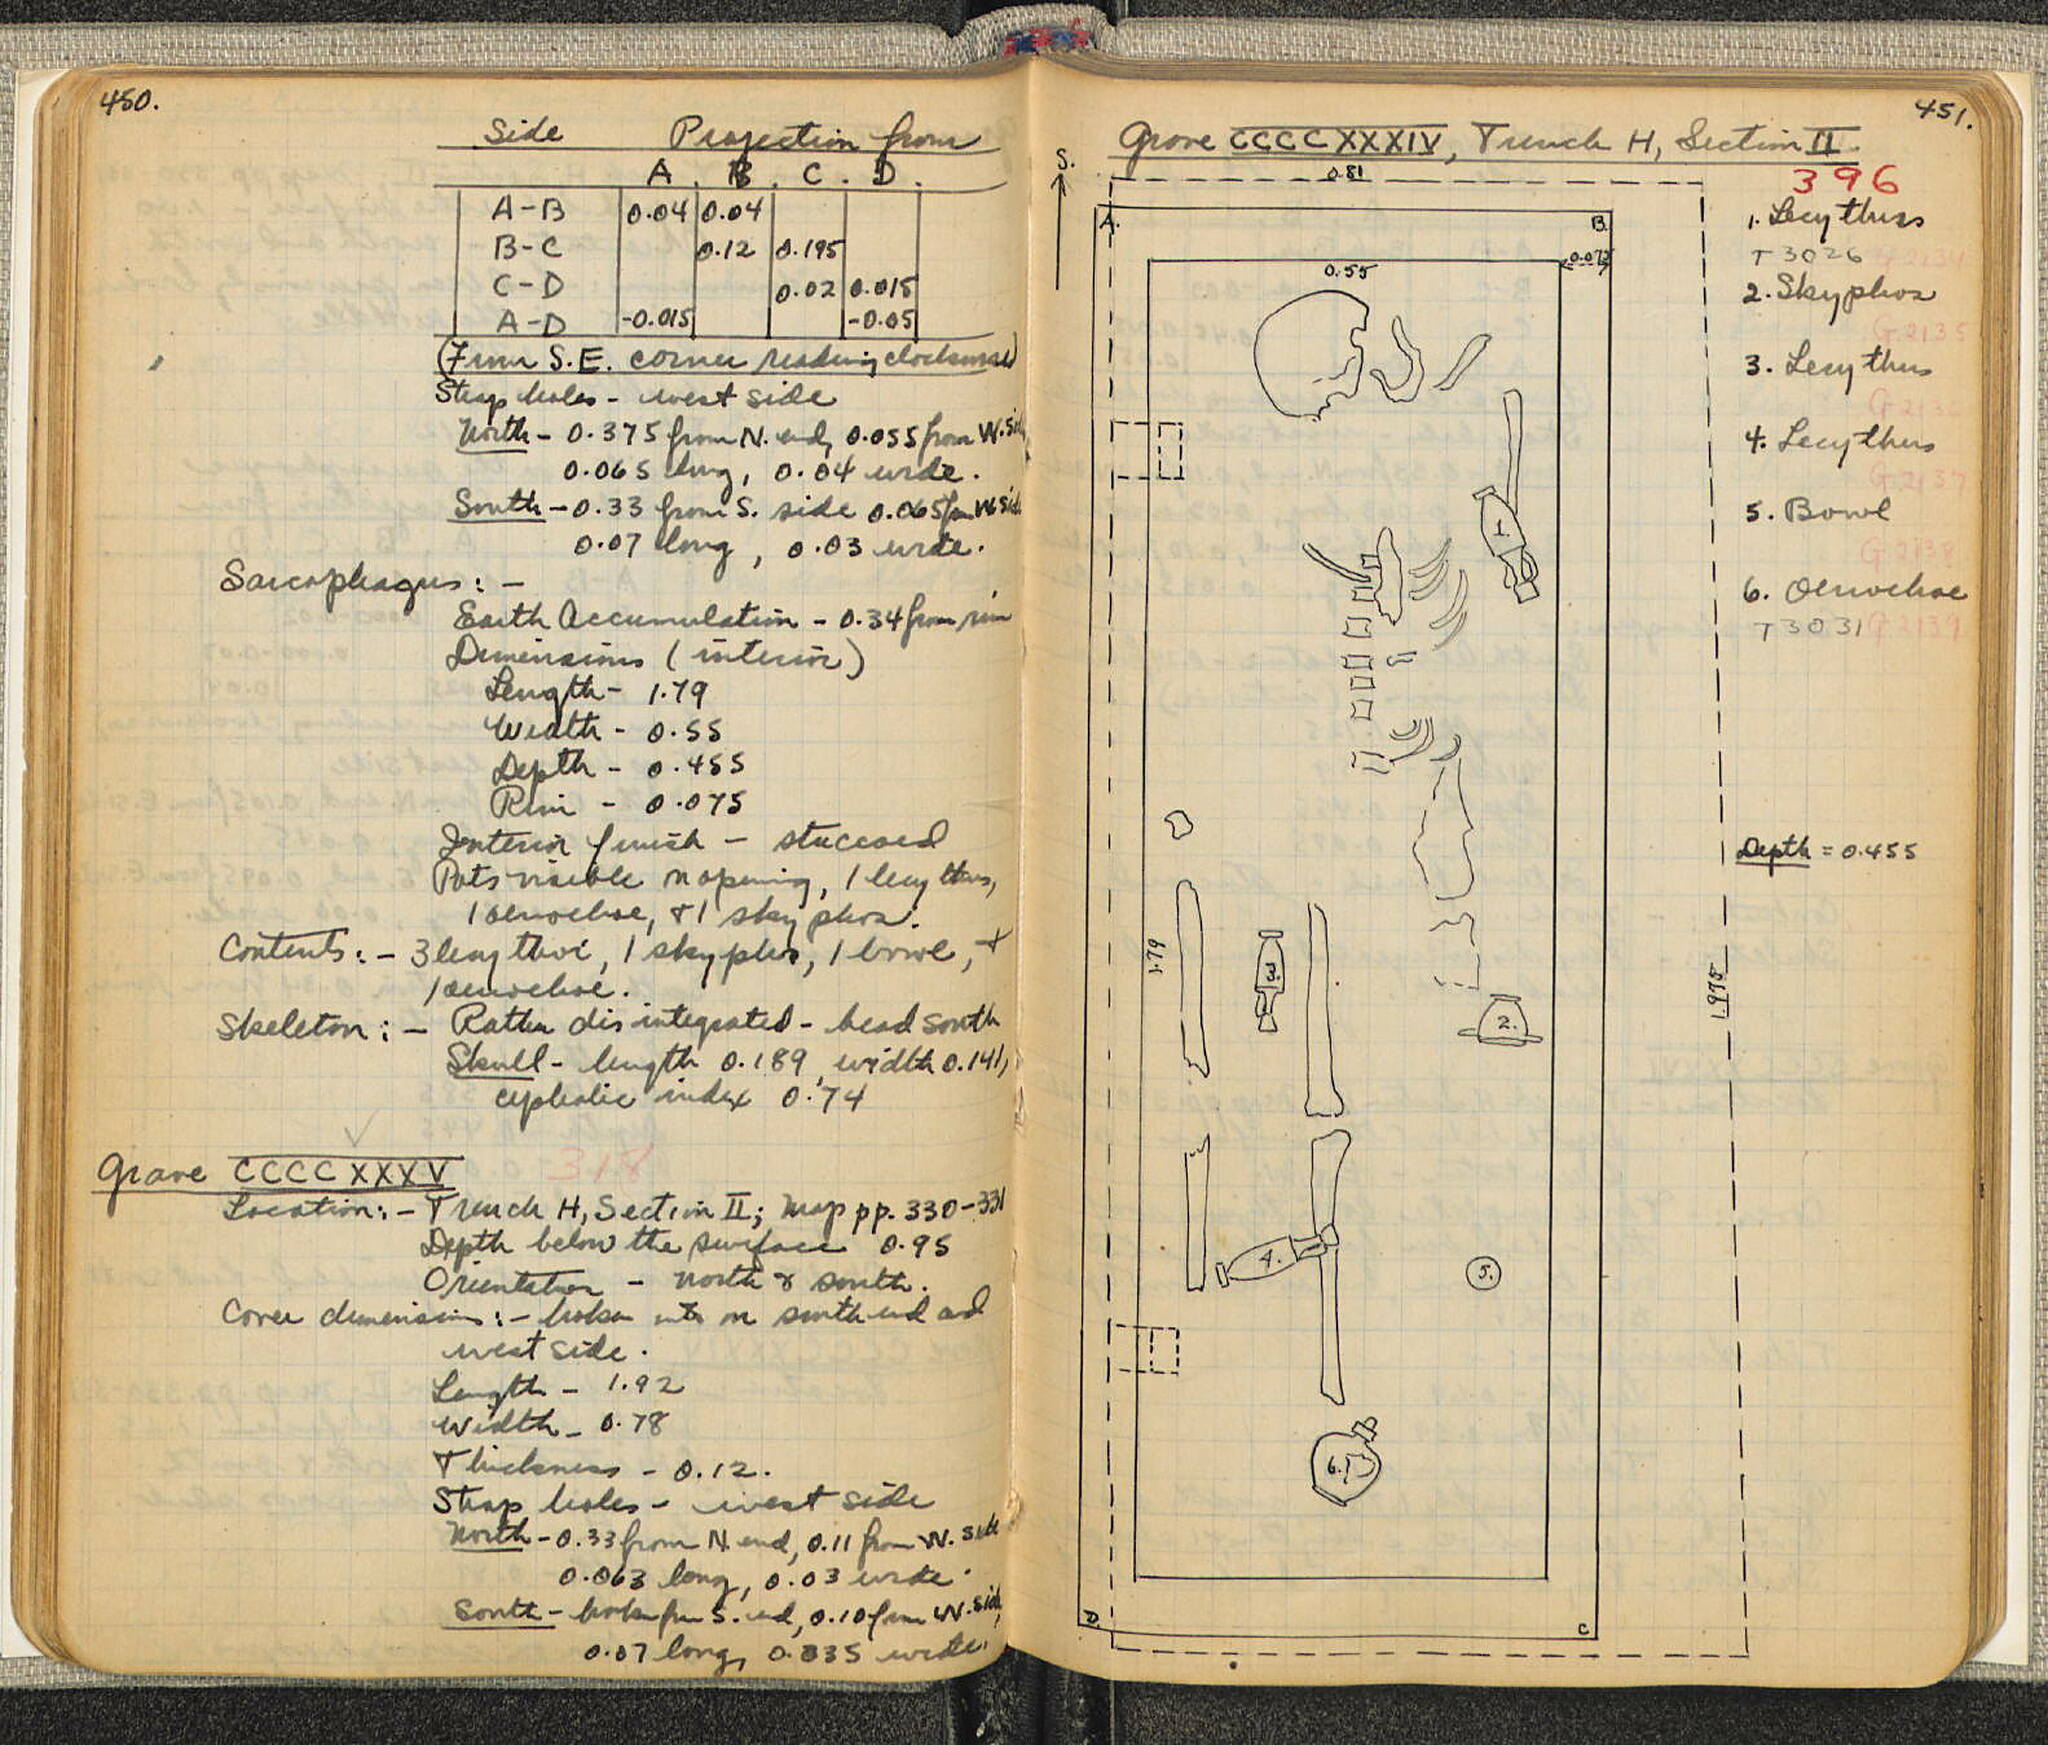 450.
Side Projection from
A . B . C . D .
A-B 0.04 0.04
B-C 0.12 0.195
C-D 0.02 0.015
A-D -0.015 -0.05
(From S.E. corner reading clockwise)
Strap holes - west side
North - 0.375 from N. end, 0.055 from W. side
0.065 long, 0.04 wide.
South - 0.33 from S. side 0.065 from W. side
0.07 long, 0.03 wide.
Sarcophagus: -
Earth Accumulation - 0.34 from rim
Dimensions (interior)
Length - 1.79
Width - 0.55
Depth - 0.455
Rim - 0.075
Interior finish - stuccoed
Pots visible on opening, 1 lecythus,
1 oenochoe, + 1 skyphos.
Contents: - 3 lecythoi, 1 skyphos, 1 bowl, +
1 oenochoe.
Skeleton: - Rather disintegrated - head south
Skull - length 0.189, width 0.141,
cephalic index 0.74
Grave CCCCXXXV 318
Location: - Trench H, Section II; Map pp. 330-331
Depth below the surface 0.95
Orientation - north & south.
Cover dimensions: - broken into on south end and
west side.
Length - 1.92
Width - 0.78
Thickness - 0.12.
Strap holes - west side
North - 0.33 from N. end, 0.11 from W. side
0.063 long, 0.03 wide.
South - broken from S. end, 0.10 from W. side,
0.07 long, 0.035 wide.
451.
Grave CCCCXXXIV, Trench H, Section II.
396
S.
0.81
A.
B.
0.55
0.075
1.
1.79
3.
2.
1.975
4.
5.
6.
D.
C
1. Lecythus
T3026
2. Skyphos
G2135
3. Lecythus
G2136
4. Lecythus
G2137
5. Bowl
G2138
6. Oenochoe
T3031 G2139
Depth = 0.455